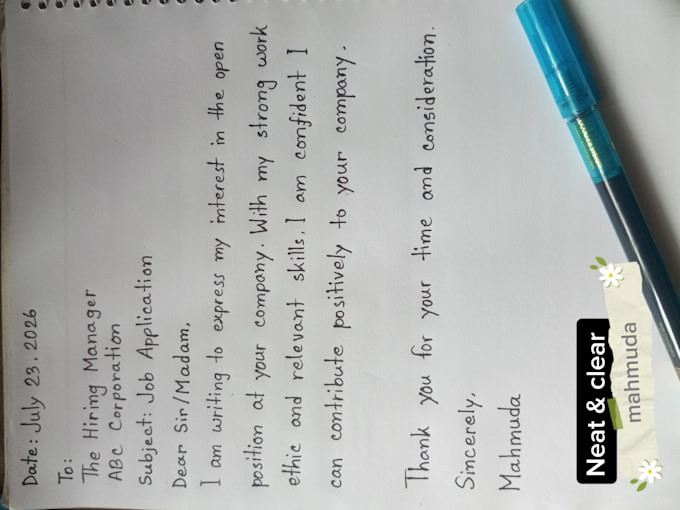 Date: July 23, 2026
To:
The Hiring Manager
ABC Corporation
Subject: Job Application
Dear Sir/Madam,
I am writing to express my interest in the open
position at your company. With my strong work
ethic and relevant skills, I am confident I
can contribute positively to your company.
Thank you for your time and consideration.
Sincerely,
Mahmuda
Neat & clear
mahmuda